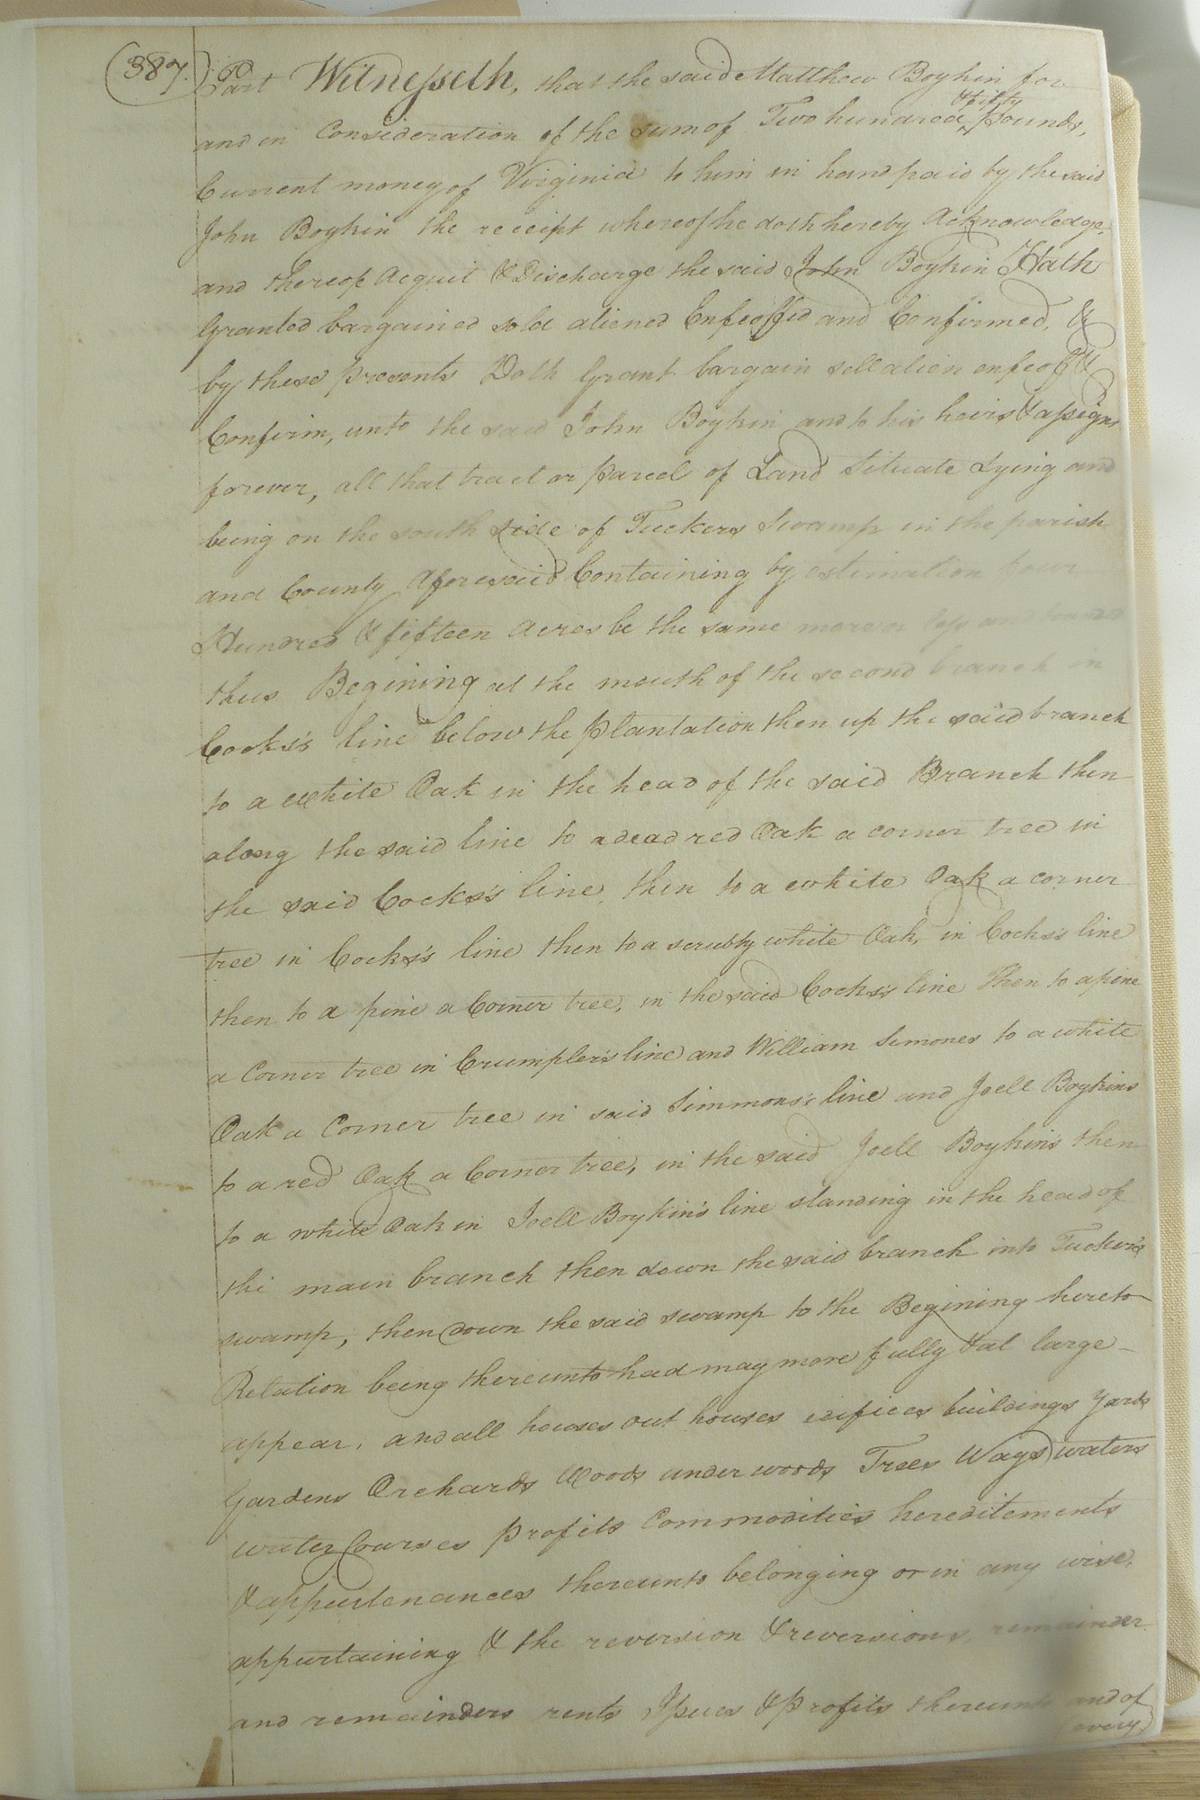 387.
Part Witnesseth, that the said Matthew Boykin for
and in Consideration of the sum of Two hundred & fifty pounds,
Current money of Virginia to him in hand paid by the said
John Boykin the receipt whereof he doth hereby Acknowledge,
and thereof Acquit & Discharge the said John Boykin Hath
Granted bargained sold aliened Enfeoffed and Confirmed, &
by these presents Doth Grant bargain sell alien enfeoff &
Confirm, unto the said John Boykin and to his heirs & assigns
forever, all that tract or parcel of Land Situate Lying and
being on the south side of Tuckers Swamp in the parish
and County Aforesaid Containing by estimation four
Hundred & fifteen Acres be the same more or less and bounded
thus Begining at the mouth of the second branch in
Cocks's line below the plantation then up the said branch
to a white Oak in the head of the said Branch then
along the said line to a dead red Oak a corner tree in
the said Cocks's line, then to a white Oak a corner
tree in Cocks's line then to a scrubby white Oak, in Cocks's line
then to a pine a Corner tree, in the said Cocks's line Then to a pine
a Corner tree in Crumpler's line and William Simones to a white
Oak a Corner tree in said Simmons's line and Joell Boykins
to a red Oak a Corner tree, in the said Joell Boykin's then
to a white Oak in Joell Boykin's line standing in the head of
the main branch then down the said branch into Tucker's
swamp, then down the said swamp to the Begining hereto
Relation being thereunto had may more fully & at large
appear, and all houses out houses edifices buildings Yards
Gardens Orchards Woods under woods Trees Ways waters
water Courses profits Commodities hereditements
& appurtenances thereunto belonging or in any wise,
appurtaining & the reversion & reversions, remainder
and remainders rents Issues & profits thereunto and of
(every)